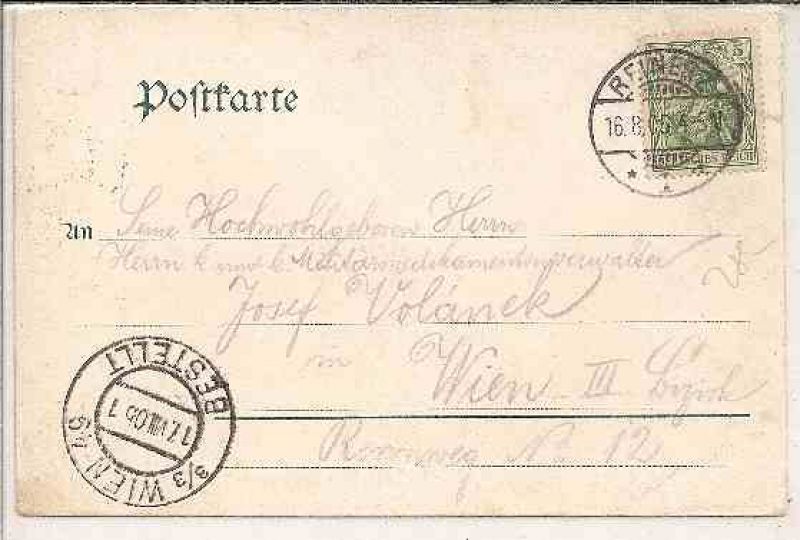 Postkarte
5
REINERZ
16.8.05 4-5 N
DEUTSCHES REICH
An Seine Hochwohlgeboren Herrn
Herrn k. und k. Militärmedikamentenverwalter
Josef Volánek
in Wien III Bezirk
Rennweg No 12
BESTELLT
17.VIII.05 1
3/3 WIEN